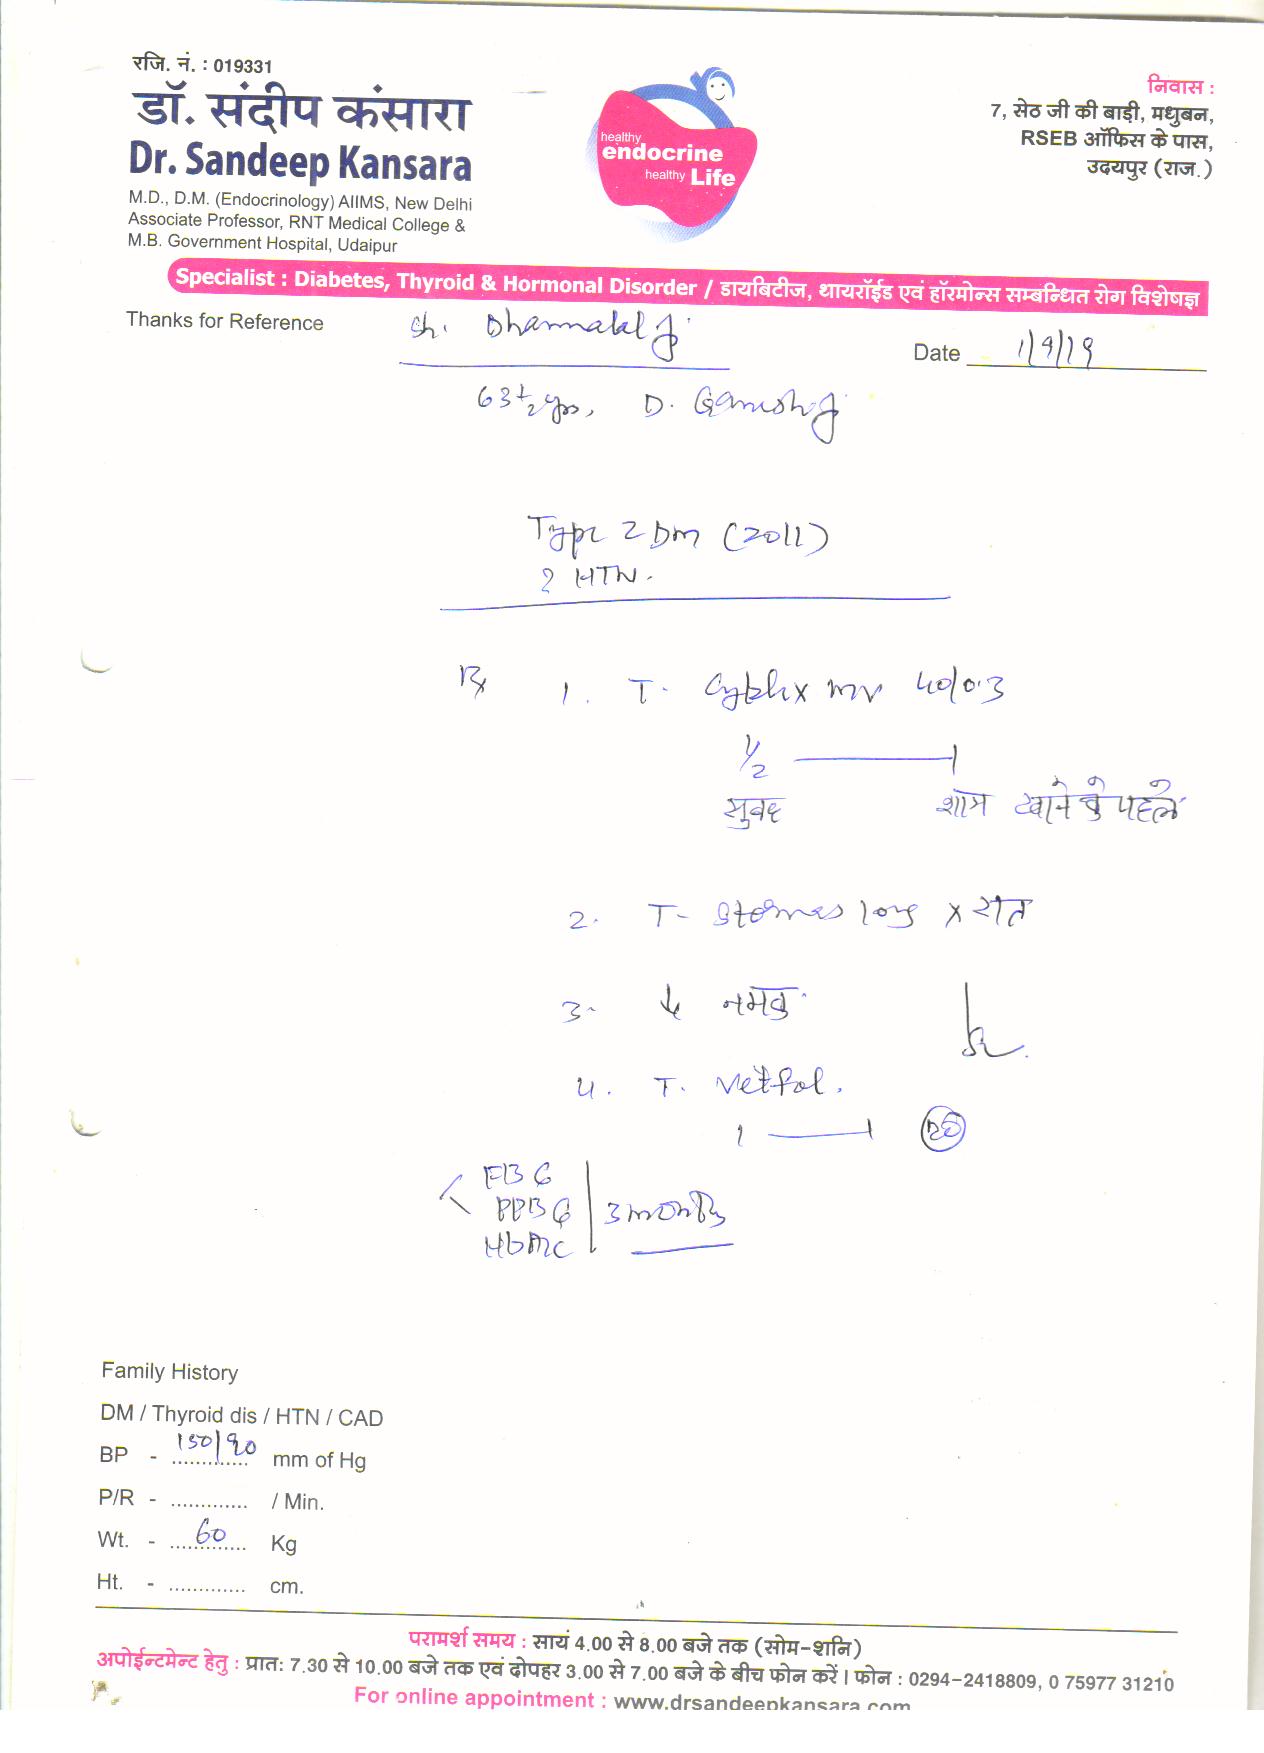 रजि. नं. : 019331
डॉ. संदीप कंसारा
Dr. Sandeep Kansara
M.D., D.M. (Endocrinology) AIIMS, New Delhi
Associate Professor, RNT Medical College &
M.B. Government Hospital, Udaipur
healthy
endocrine
healthy Life
निवास :
7, सेठ जी की बाड़ी, मधुबन,
RSEB ऑफिस के पास,
उदयपुर (राज.)
Specialist : Diabetes, Thyroid & Hormonal Disorder / डायबिटीज, थायरॉईड एवं हॉरमोन्स सम्बन्धित रोग विशेषज्ञ
Thanks for Reference Sh. Dhannalal J
Date 1/9/19
63 yrs, D. Ganesh J
Type 2 DM (2011)
? HTN.
Rx 1. T. mv 40/0.3
1/2 — 1
सुबह शाम खाने के पहले
2. T- long x रात
3. ↓ नमक
4. T. Metfol.
1 — 1
FBG
PPBG
HbA1c
3 months
Family History
DM / Thyroid dis / HTN / CAD
BP - 150/90 mm of Hg
P/R - ............. / Min.
Wt. - 60 Kg
Ht. - ............. cm.
परामर्श समय : सायं 4.00 से 8.00 बजे तक (सोम-शनि)
अपोईन्टमेन्ट हेतु : प्रातः 7.30 से 10.00 बजे तक एवं दोपहर 3.00 से 7.00 बजे के बीच फोन करें। फोन : 0294-2418809, 0 75977 31210
For online appointment : www.drsandeepkansara.com